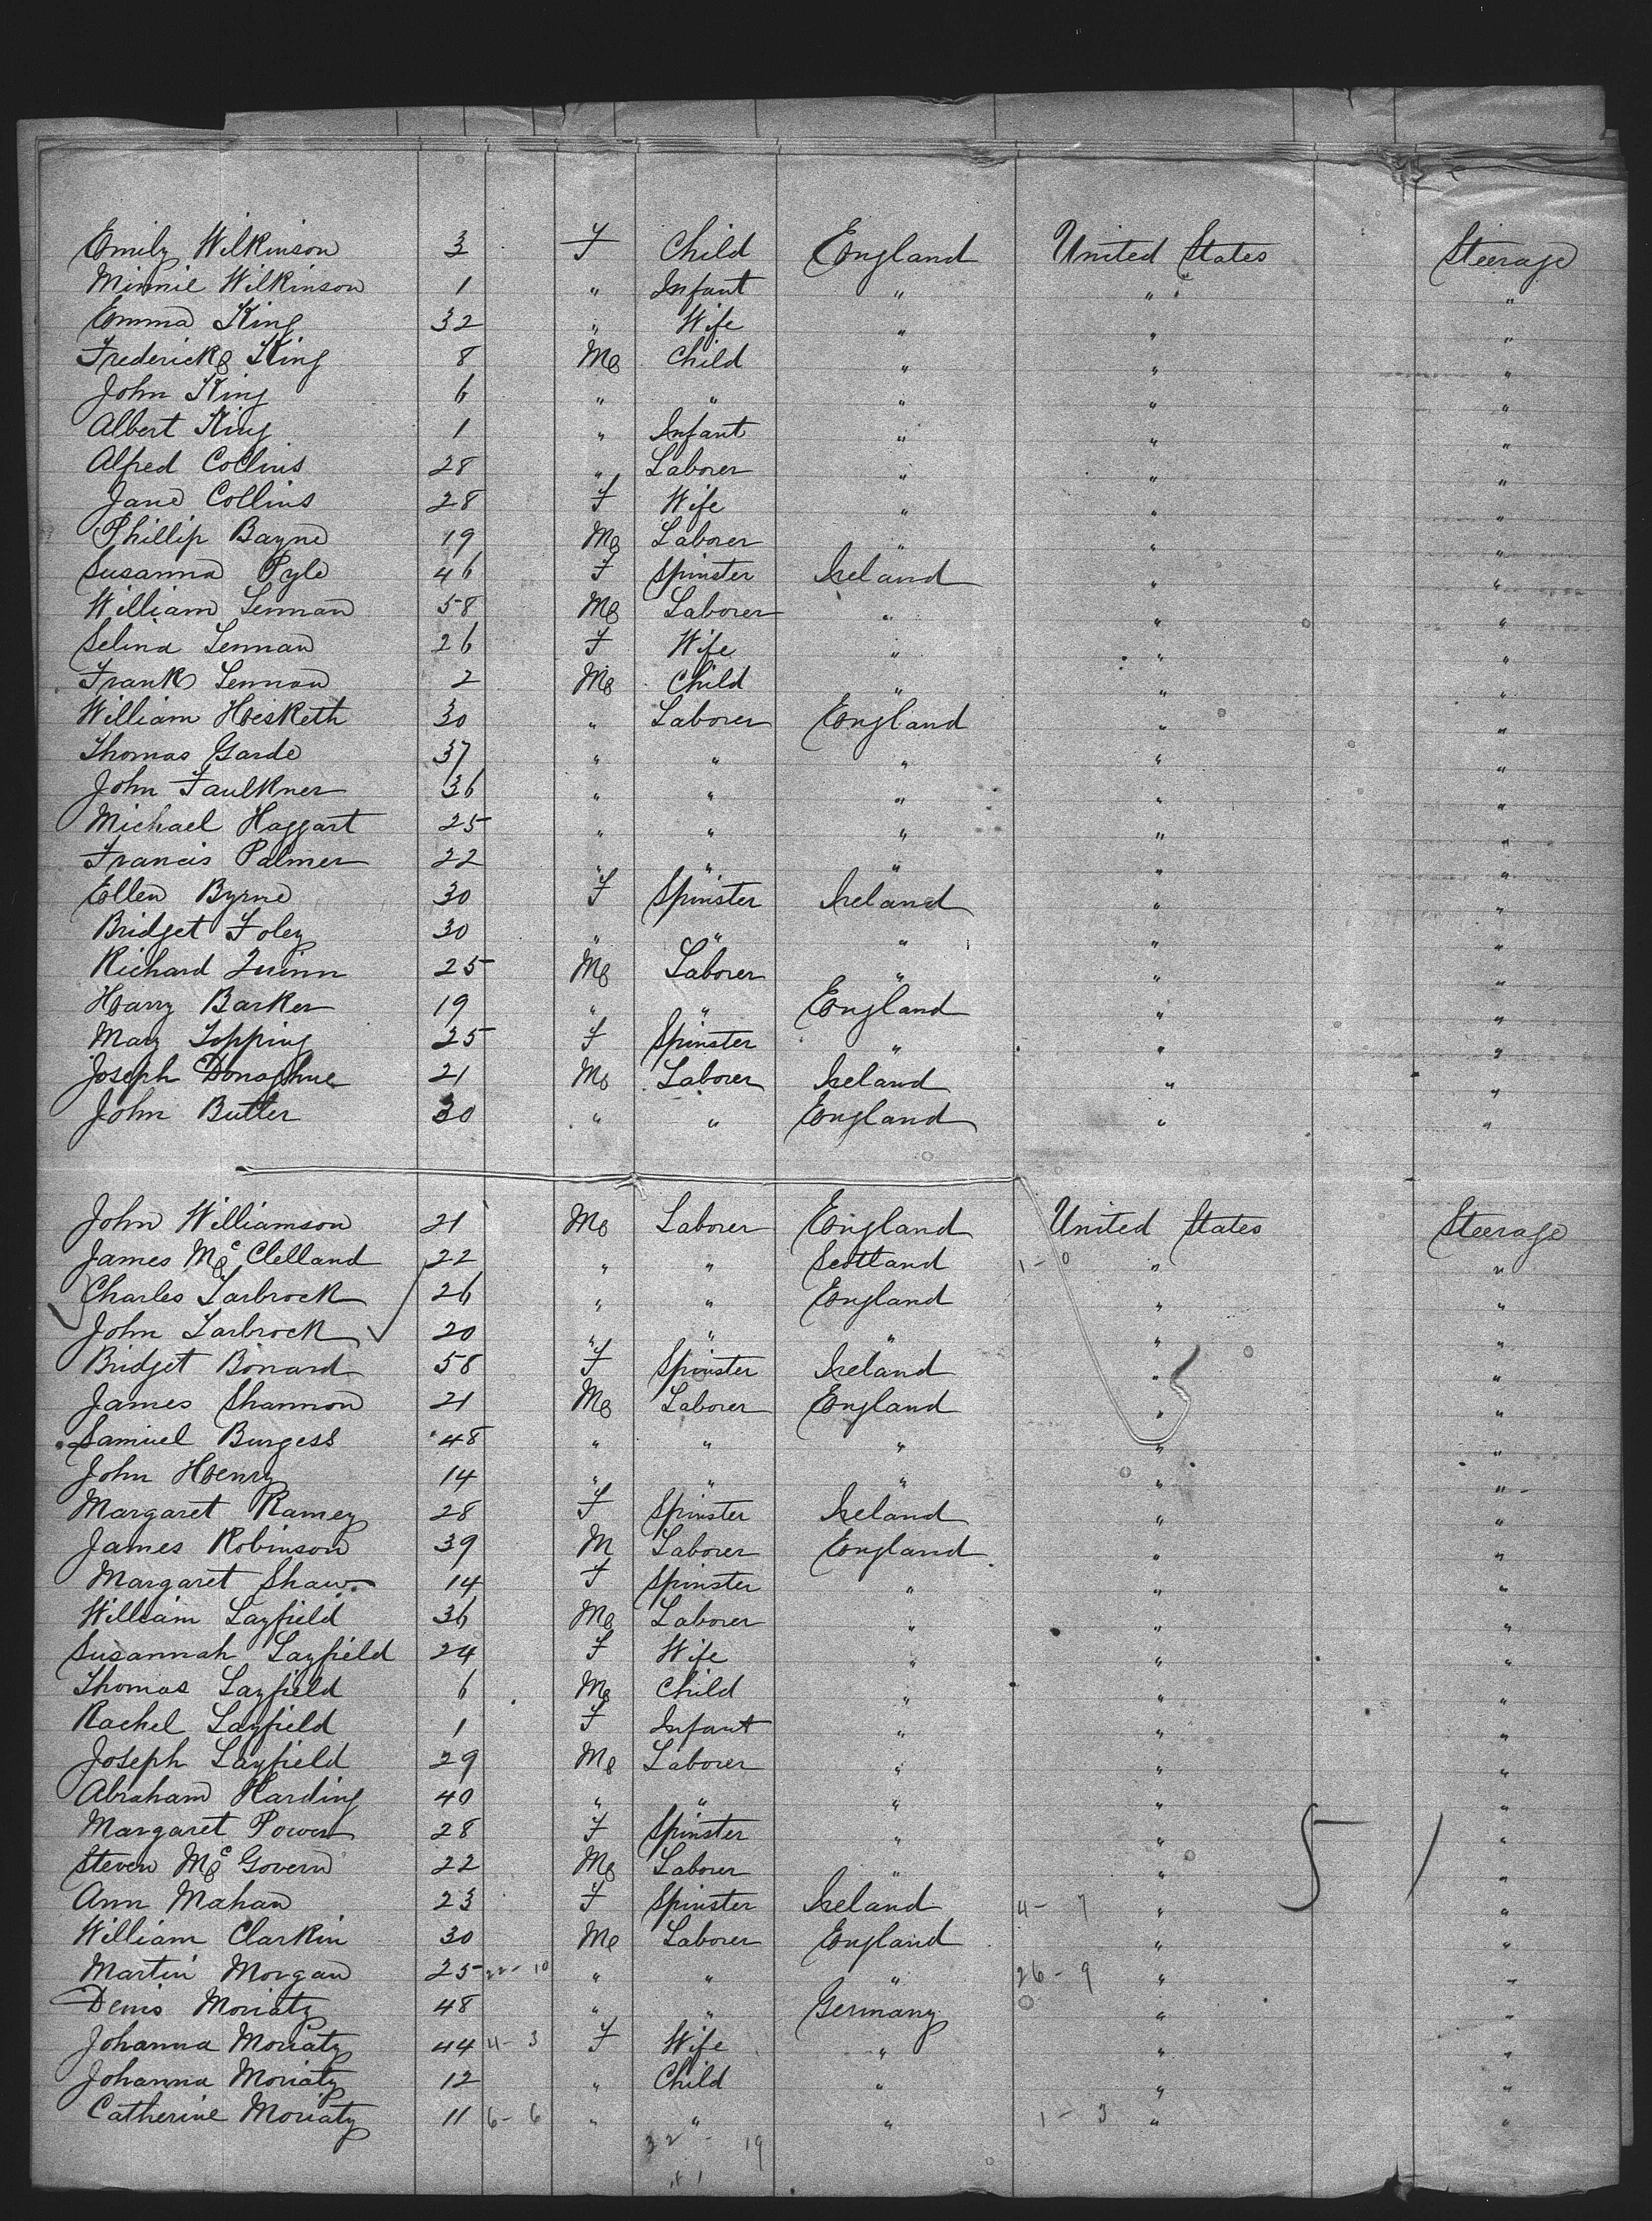 Emily Wilkinson 3 F Child England United States Steerage
Minnie Wilkinson 1 " Infant " " "
Emma King 32 " Wife " " "
Frederick King 8 Me Child " " "
John King 6 " " " " "
Albert King 1 " Infant " " "
Alfred Collins 28 " Laborer " " "
Jane Collins 28 F Wife " " "
Phillip Bayne 19 Me Laborer " " "
Susanna Pyle 46 F Spinster Ireland " "
William Lennan 58 Me Laborer " " "
Selina Lennan 26 F Wife " " "
Frank Lennan 2 Me Child " " "
William Hesketh 30 " Laborer England " "
Thomas Garde 37 " " " " "
John Faulkner 36 " " " " "
Michael Haggart 25 " " " " "
Francis Palmer 22 " " " " "
Ellen Byrne 30 F Spinster Ireland " "
Bridget Foley 30 " " " " "
Richard Quinn 25 Me Laborer " " "
Harry Barker 19 " " England " "
Mary Topping 25 F Spinster " " "
Joseph Donaghue 21 Me Laborer Ireland " "
John Butler 30 " " England " "
John Williamson 21 Me Laborer England United States Steerage
James Mc Clelland 22 " " Scotland 1-0 " "
Charles Tarbrock 26 " " England " "
John Tarbrock 20 " " " " "
Bridget Bonard 58 F Spinster Ireland " "
James Shannon 21 Me Laborer England " "
Samuel Burgess 48 " " " " "
John Henry 14 " " " " "
Margaret Ramey 28 F Spinster Ireland " "
James Robinson 39 M Laborer England " "
Margaret Shaw 14 F Spinster " " "
William Layfield 36 Me Laborer " " "
Susannah Layfield 24 F Wife " " "
Thomas Layfield 6 Me Child " " "
Rachel Layfield 1 F Infant " " "
Joseph Layfield 29 Me Laborer " " "
Abraham Harding 40 " " " " "
Margaret Power 28 F Spinster " " "
Steven Mc Govern 22 Me Laborer " " 5 1 "
Ann Mahan 23 F Spinster Ireland 4-7 " "
William Clarkin 30 Me Laborer England " "
Martin Morgan 25 22-10 " " " 26-9 " "
Denis Moriaty 48 " " Germany " "
Johanna Moriaty 44 4-3 F Wife " " "
Johanna Moriaty 12 " Child " " "
Catherine Moriaty 11 6-6 " " " 1-3 " "
32-19